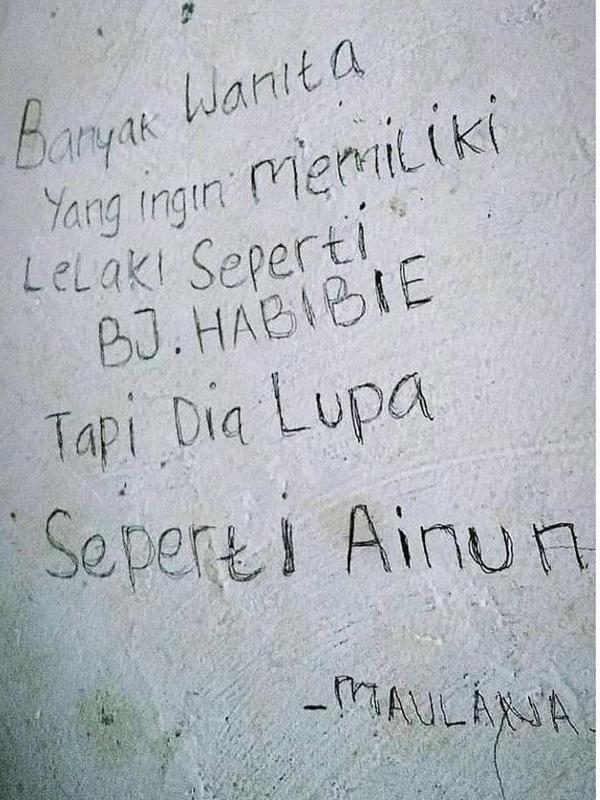 Banyak Wanita
Yang ingin MemiLiki
LeLaki Seperti
BJ. HABIBIE
Tapi Dia Lupa
Seperti Ainun
- MAULANA.